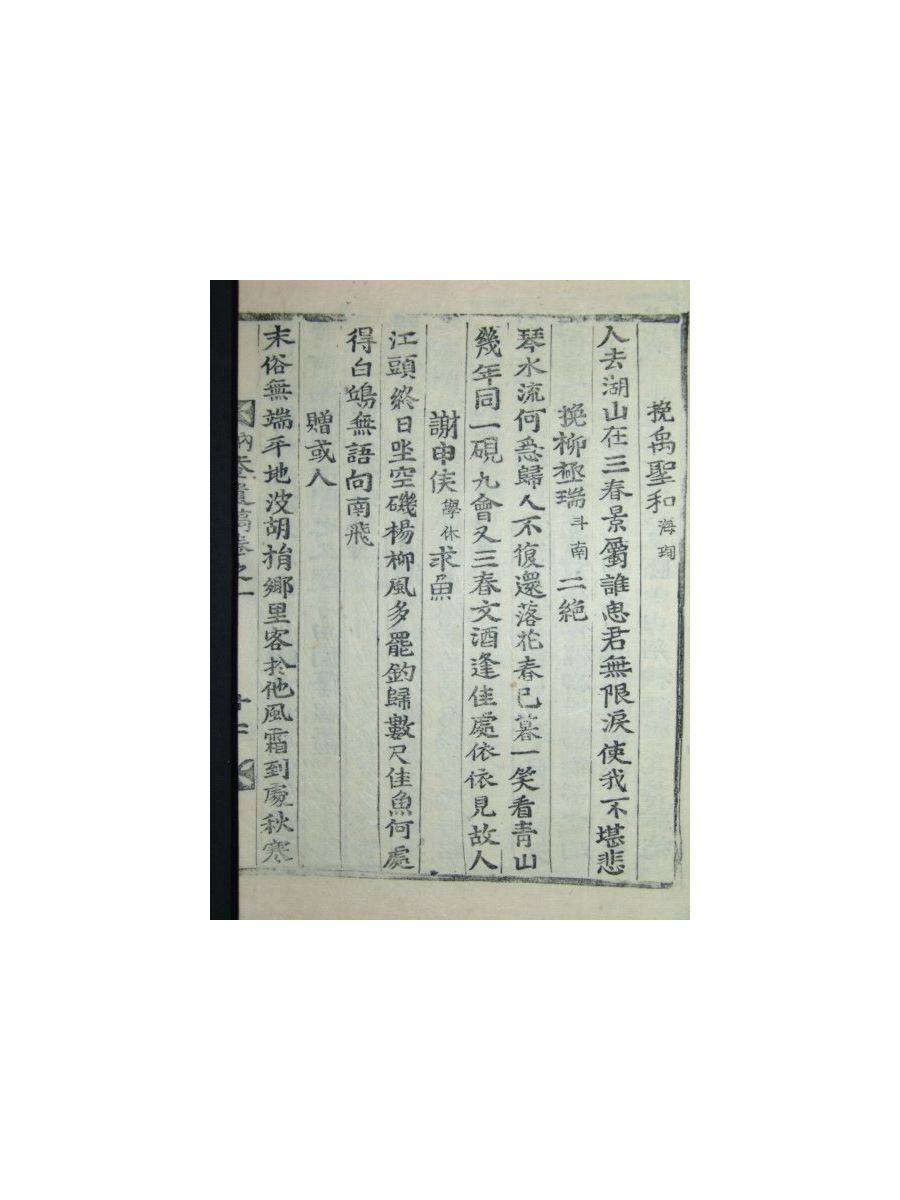 挽禹聖和海珣
人去湖山在三春景屬誰思君無限淚使我不堪悲
挽柳極瑞斗南二絶
琴水流何急歸人不復還落花春已暮一笑看靑山
幾年同一硯九會又三春文酒逢佳處依依見故人
謝申侯學休求魚
江頭終日坐空磯楊柳風多罷釣歸數尺佳魚何處
得白鷗無語向南飛
贈或人
末俗無端平地波胡捐鄕里客於他風霜到處秋寒
訥菴遺稿卷之一
十二